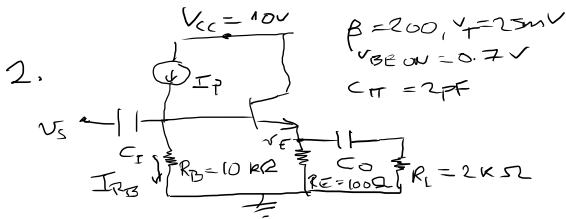 VCC = 10V
β = 200, VT = 25mV
VBE ON = 0.7 V
Cπ = 2pF
2.
IP
vs
CI
vE
CO
IRB
RB = 10 kΩ
RE = 100Ω
RL = 2KΩ